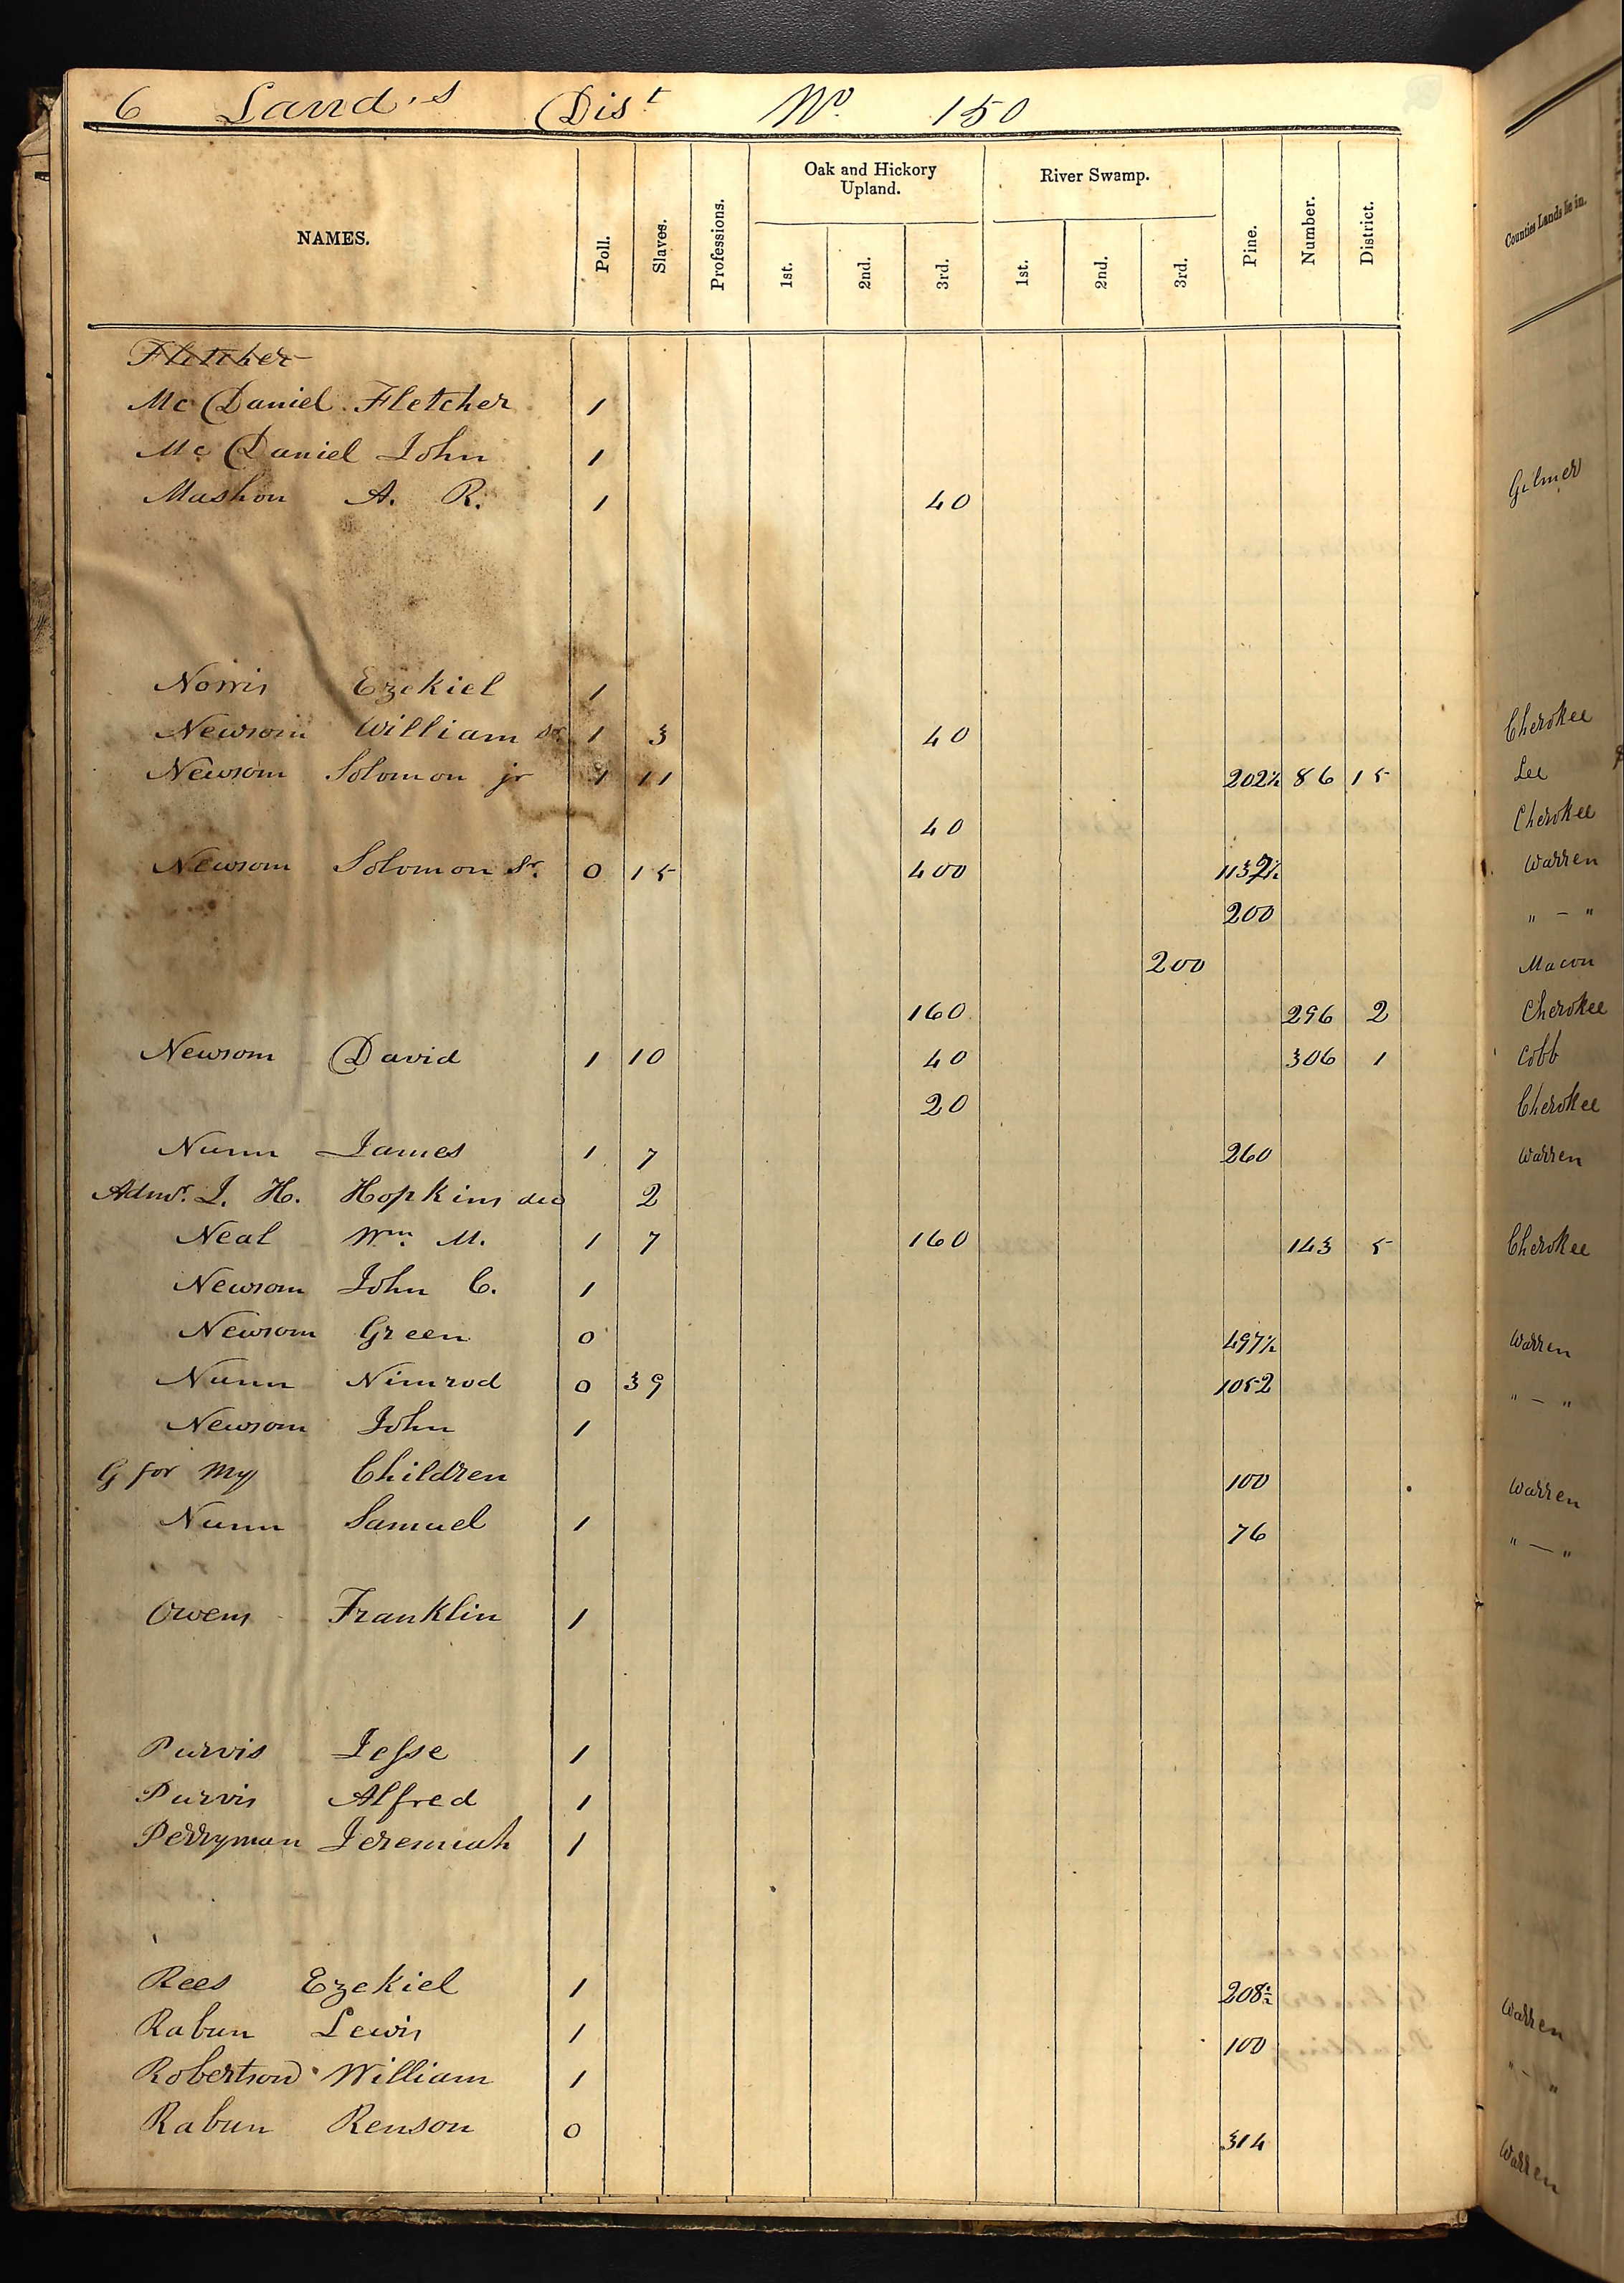 6 Land's Dist No. 150
NAMES. Poll. Slaves. Professions. Oak and Hickory Upland. 1st. 2nd. 3rd. River Swamp. 1st. 2nd. 3rd. Pine. Number. District. Counties Lands lie in.
Fletcher
McDaniel Fletcher 1
McDaniel John 1
Mashon A. R. 1 40 Gilmer
Norris Ezekiel 1
Newsom William Sr 1 3 40 Cherokee
Newsom Solomon jr 1 11 202½ 86 15 Lee
40 Cherokee
Newsom Solomon Sr. 0 15 400 1132½ Warren
200 " – "
200 Macon
160 296 2 Cherokee
Newsom David 1 10 40 306 1 Cobb
20 Cherokee
Nunn James 1 7 260 Warren
Admr. J. H. Hopkins dec 2
Neal Wm. M. 1 7 160 143 5 Cherokee
Newsom John C. 1
Newsom Green 0 497½ Warren
Nunn Nimrod 0 39 1052 " – "
Newsom John 1
G for My Children 100 Warren
Nunn Samuel 1 76 " — "
Owens Franklin 1
Purvis Jesse 1
Purvis Alfred 1
Perryman Jeremiah 1
Rees Ezekiel 1 208½ Warren
Rabun Lewis 1 100 " – "
Robertson William 1
Rabun Renson 0 314 Warren